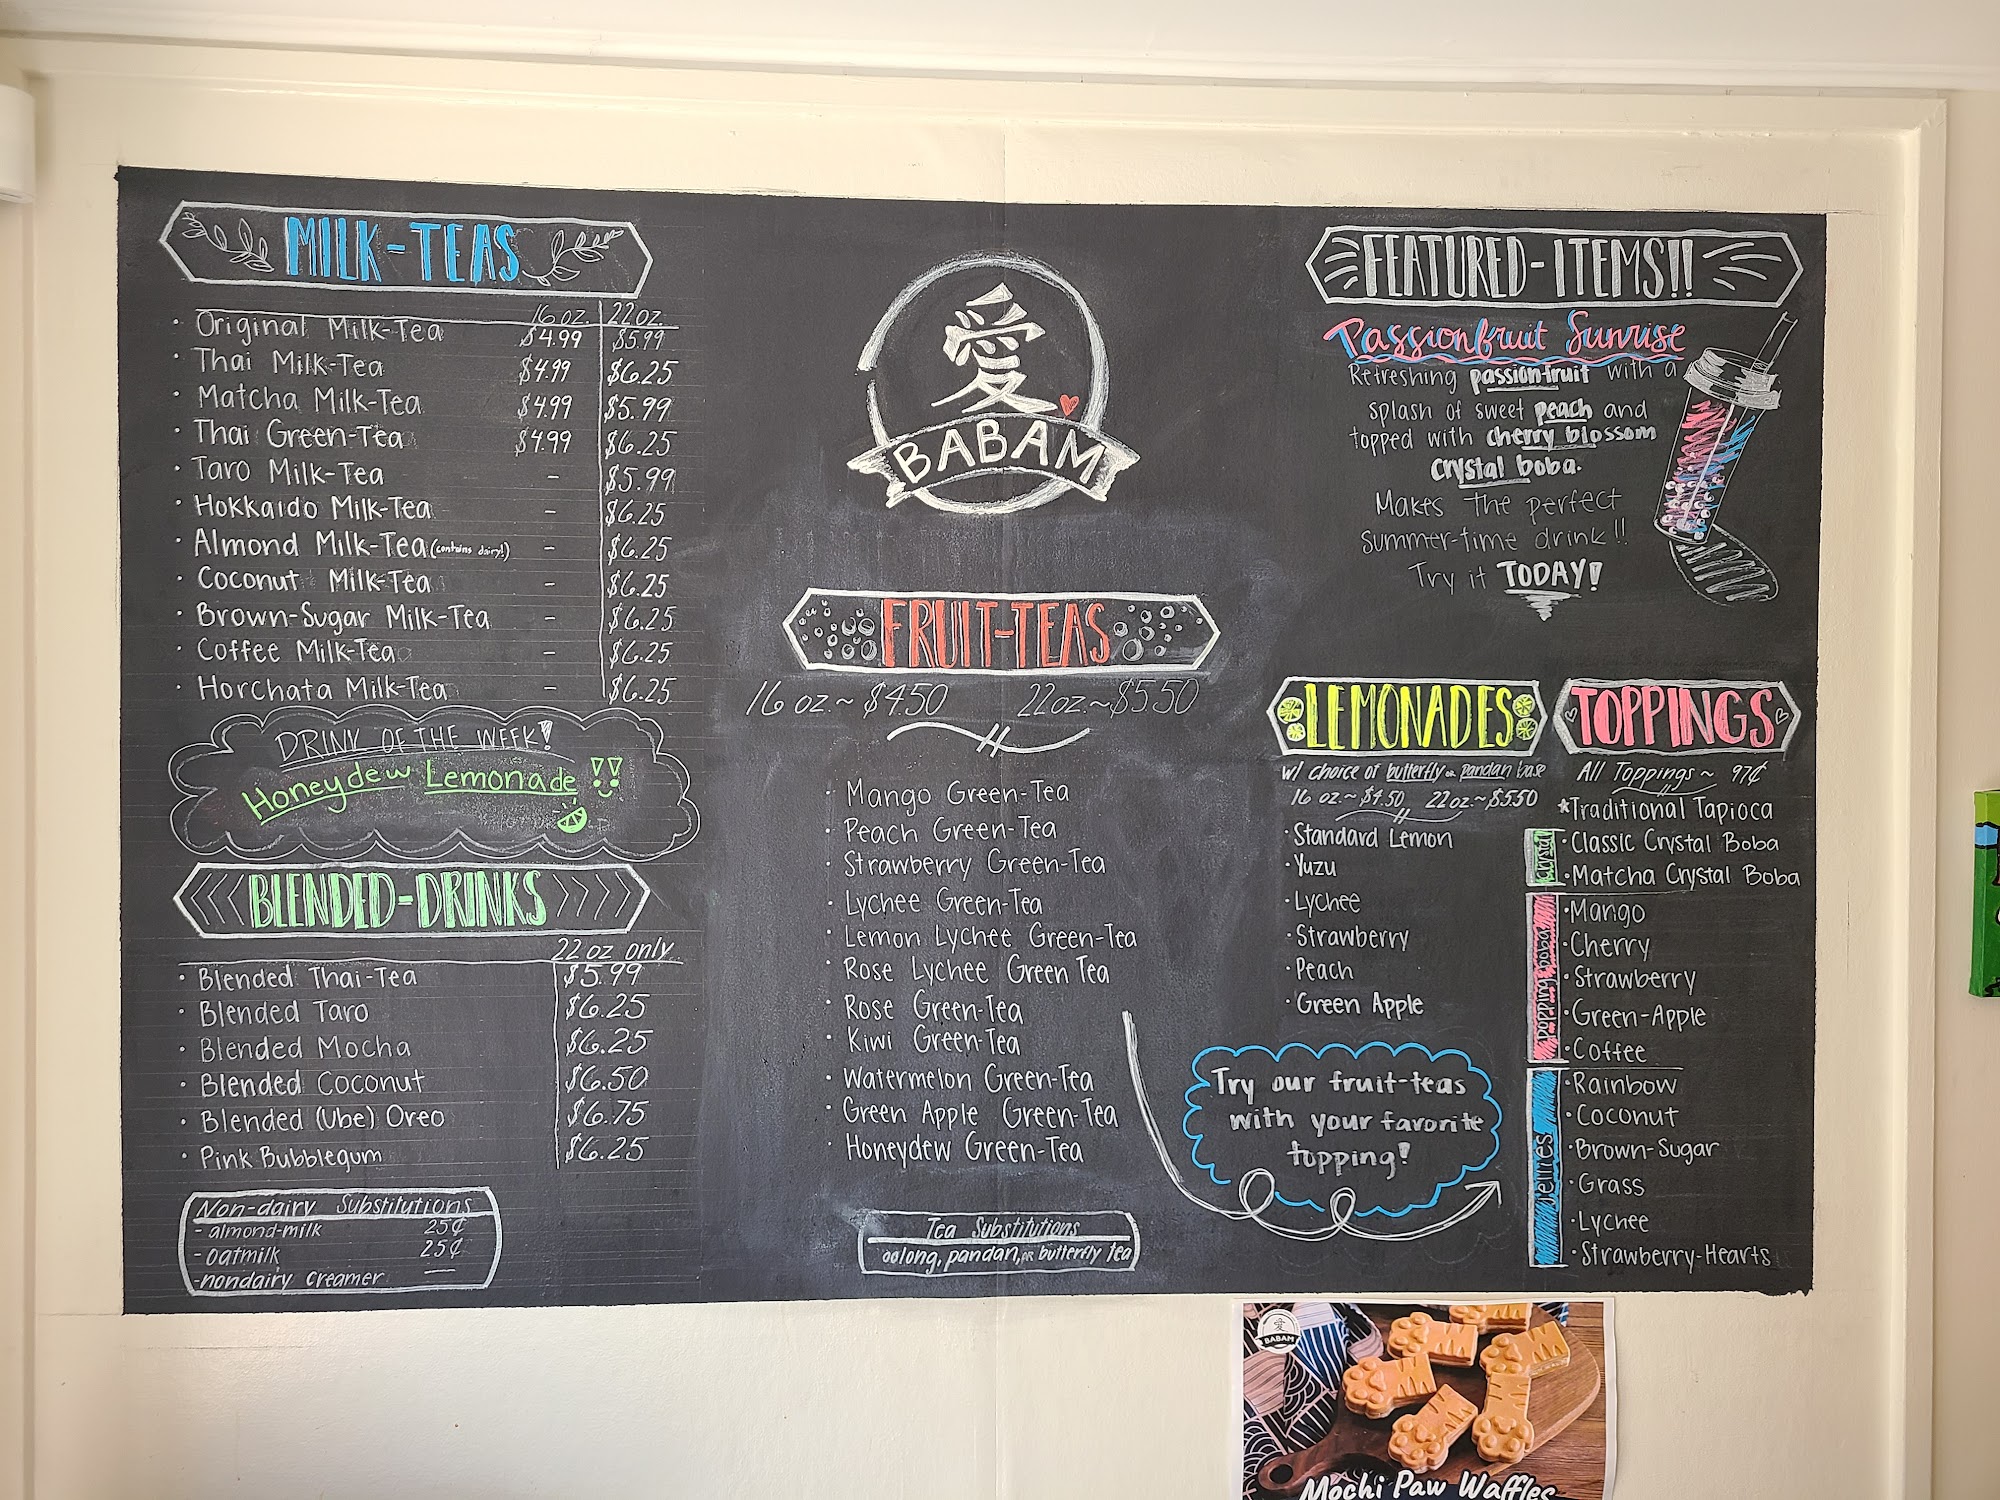 MILK-TEAS
16 oz. 22 oz.
· Original Milk-Tea $4.99 $5.99
· Thai Milk-Tea $4.99 $6.25
· Matcha Milk-Tea $4.99 $5.99
· Thai Green-Tea $4.99 $6.25
· Taro Milk-Tea - $5.99
· Hokkaido Milk-Tea - $6.25
· Almond Milk-Tea (contains dairy!) - $6.25
· Coconut Milk-Tea - $6.25
· Brown-Sugar Milk-Tea - $6.25
· Coffee Milk-Tea - $6.25
· Horchata Milk-Tea - $6.25
DRINK OF THE WEEK!
Honeydew Lemonade !!
BLENDED-DRINKS
22 oz only
· Blended Thai-Tea $5.99
· Blended Taro $6.25
· Blended Mocha $6.25
· Blended Coconut $6.50
· Blended (Ube) Oreo $6.75
· Pink Bubblegum $6.25
Non-dairy Substitutions
- almond-milk 25¢
- oatmilk 25¢
-nondairy creamer —
愛
BABAM
FRUIT-TEAS
16 oz.~ $4.50 22oz.~$5.50
· Mango Green-Tea
· Peach Green-Tea
· Strawberry Green-Tea
· Lychee Green-Tea
· Lemon Lychee Green-Tea
· Rose Lychee Green Tea
· Rose Green-Tea
· Kiwi Green-Tea
· Watermelon Green-Tea
· Green Apple Green-Tea
· Honeydew Green-Tea
Tea Substitutions
oolong, pandan, or butterfly tea
FEATURED-ITEMS!!
Passionfruit Sunrise
Refreshing passionfruit with a
splash of sweet peach and
topped with cherry blossom
crystal boba.
Makes the perfect
summer-time drink!!
Try it TODAY!
LEMONADES
w/ choice of butterfly or pandan base
16 oz.~ $4.50 22oz.~$5.50
· Standard Lemon
· Yuzu
· Lychee
· Strawberry
· Peach
· Green Apple
Try our fruit-teas
with your favorite
topping!
TOPPINGS
All Toppings ~ 97¢
*Traditional Tapioca
crystal
· Classic Crystal Boba
· Matcha Crystal Boba
popping boba
· Mango
· Cherry
· Strawberry
· Green-Apple
· Coffee
Jellies
· Rainbow
· Coconut
· Brown-Sugar
· Grass
· Lychee
· Strawberry-Hearts
愛
BABAM
Mochi Paw Waffles